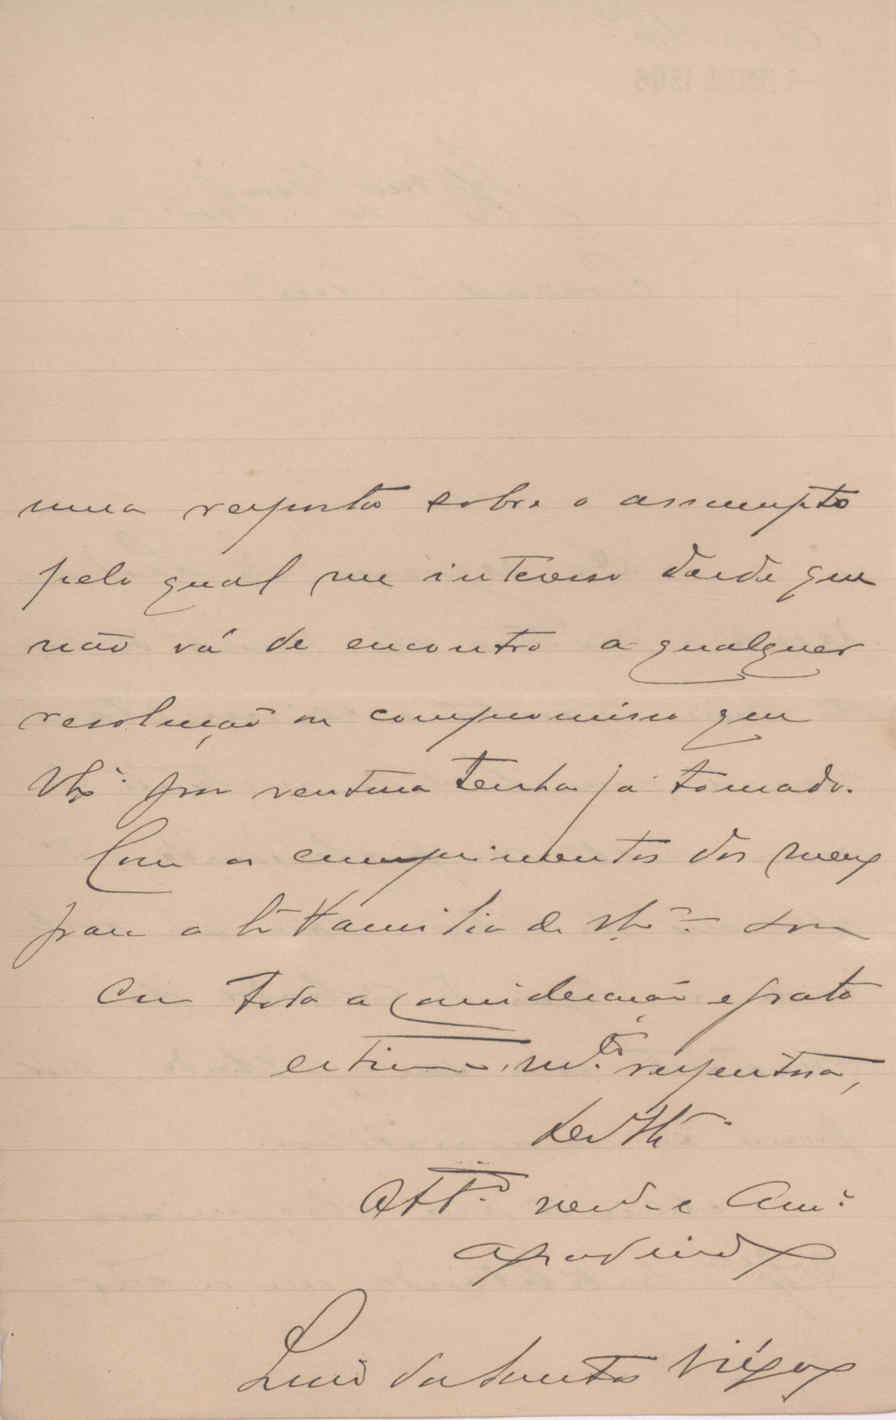 uma resposta sobre o assumpto
pelo qual me interesso desde que
não vá de encontro a qualquer
resolução ou compromisso que
VExª por ventura tenha já tomado.
Com os cumprimentos dos meus
para a Exª Familia de VExª sou
com toda a consideração e grata
estima, mtº respeitosa,
De VExª
Attº venºr e Amº
agradecido
Luiz dos Santos Viégas